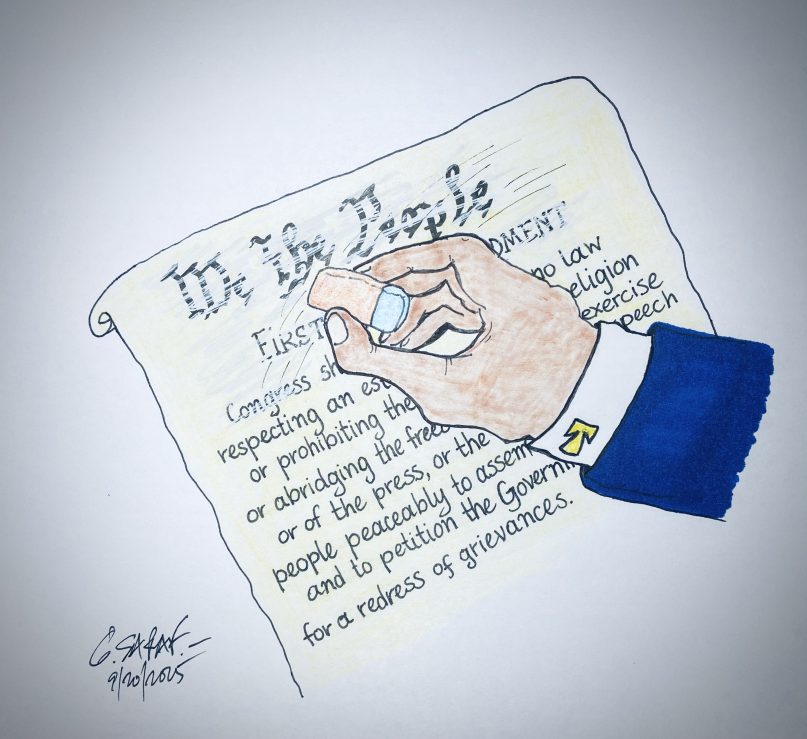 We The People
FIRST DMENT
Congress sh no law
respecting an est eligion
or prohibiting the exercise
or abridging the freed peech
or of the press, or the
people peaceably to assem
and to petition the Governm
for a redress of grievances.
G. SARAF.
9/20/2025